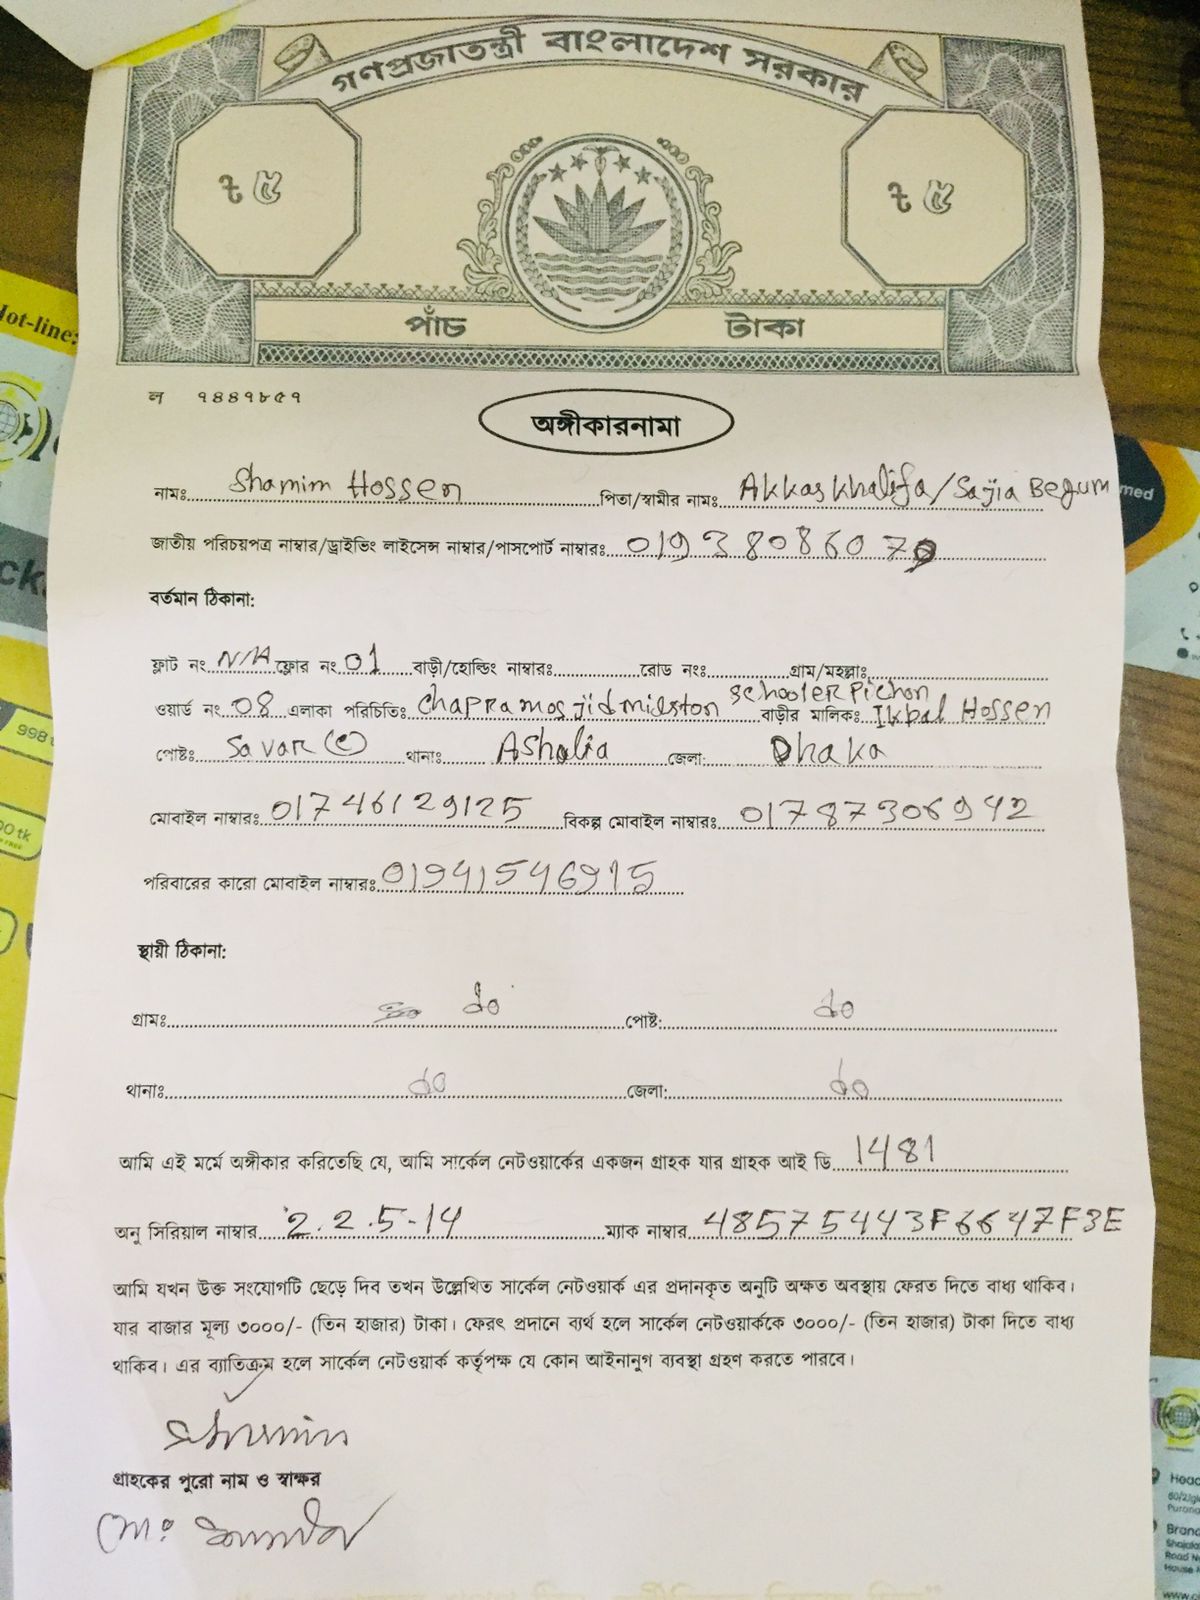 গণপ্রজাতন্ত্রী বাংলাদেশ সরকার
৳ ৫ ৳ ৫
পাঁচ টাকা
ল ৭৪৪৭৮৫৭
অঙ্গীকারনামা
নামঃ Shamim Hossen পিতা/স্বামীর নামঃ Akkas Khalifa/Sajia Begum
জাতীয় পরিচয়পত্র নাম্বার/ড্রাইভিং লাইসেন্স নাম্বার/পাসপোর্ট নাম্বারঃ 019380860
বর্তমান ঠিকানা:
ফ্লাট নং N/A ফ্লোর নং 01 বাড়ী/হোল্ডিং নাম্বারঃ রোড নংঃ গ্রাম/মহল্লাঃ
ওয়ার্ড নং 08 এলাকা পরিচিতিঃ Chapra mosjid milston schooler Pichon বাড়ীর মালিকঃ Ikbal Hossen
পোষ্টঃ Savar (c) থানাঃ Ashulia জেলা: Dhaka
মোবাইল নাম্বারঃ 01746129125 বিকল্প মোবাইল নাম্বারঃ 01787306942
পরিবারের কারো মোবাইল নাম্বারঃ 01941546915
স্থায়ী ঠিকানা:
গ্রামঃ do পোষ্ট: do
থানাঃ do জেলা: do
আমি এই মর্মে অঙ্গীকার করিতেছি যে, আমি সার্কেল নেটওয়ার্কের একজন গ্রাহক যার গ্রাহক আই ডি 1481
অনু সিরিয়াল নাম্বার 2.2.5-14 ম্যাক নাম্বার 48575443F6647F3E
আমি যখন উক্ত সংযোগটি ছেড়ে দিব তখন উল্লেখিত সার্কেল নেটওয়ার্ক এর প্রদানকৃত অনুটি অক্ষত অবস্থায় ফেরত দিতে বাধ্য থাকিব।
যার বাজার মূল্য ৩০০০/- (তিন হাজার) টাকা। ফেরৎ প্রদানে ব্যর্থ হলে সার্কেল নেটওয়ার্ককে ৩০০০/- (তিন হাজার) টাকা দিতে বাধ্য
থাকিব। এর ব্যাতিক্রম হলে সার্কেল নেটওয়ার্ক কর্তৃপক্ষ যে কোন আইনানুগ ব্যবস্থা গ্রহণ করতে পারবে।
গ্রাহকের পুরো নাম ও স্বাক্ষর
Hot-line:
998
00 tk
med
Head
Brand
Road N
House
www.